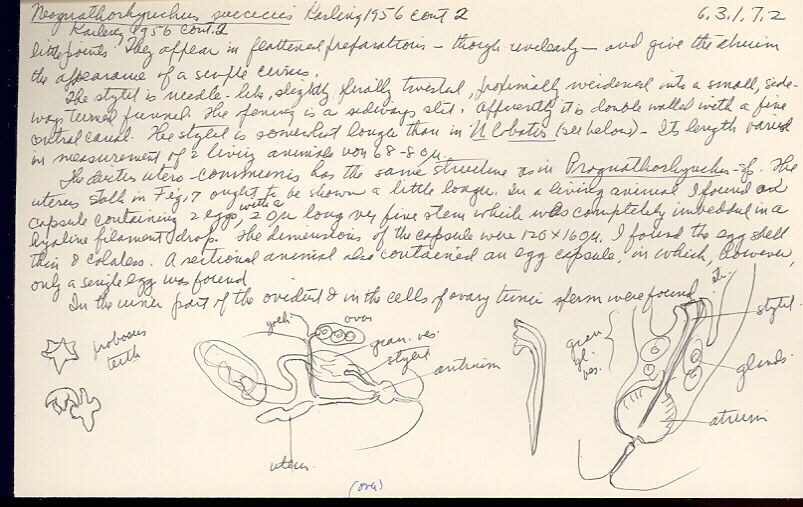 Neognathorhynchus suecicus Karling 1956 cont 2 6.3.1.7.2
Karling 1956 cont. 2
little points. They appear in flattened preparations — though unclearly — and give the atrium
the appearance of a simple cirrus.
The stylet is needle-like, slightly finally twisted, proximally widened into a small, side-
ways turned funnel. The opening is a sideways slit. Apparently it is double walled with a fine
central canal. The stylet is somewhat longer than in N lobatus (see below) - Its length varied
in measurement of 2 living animals von 68-80µ.
The ductus utero-communis has the same structure as in Prognathorhynchus - sp. The
uterus stalk in Fig. 7 ought to be shown a little longer. In a living animal I found an
capsule containing 2 eggs, with a 20µ long very fine stem which was completely imbedded in a
hyaline filament drop. The dimensions of the capsule were 120 x 160µ. I found the egg shell
thin & colorless. A sectioned animal also contained an egg capsule, in which, however,
only a single egg was found
In the inner part of the oviduct & in the cells of ovary tunic sperm were found
proboscis
teeth
yolk
ova
gran. ves.
stylet
antrum
uterus
gran.
gl.
ves.
stylet
glands
atrium
(over)